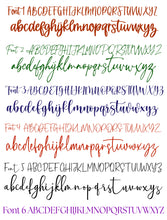 Font 1 ABCDEFGHIJKLMNOPQRSTUVWXYZ
abcdefghijklmnopqrstuvwxyz
Font 2 ABCDEFGHIJKLMNOPQRSTUVWXYZ
abcdefghijklmnopqrstuvwxyz
Font 3 ABCDEFGHIJKLMNOPQRSTUVWXYZ
abcdefghijklmnopqrstuvwxyz
Font 4 ABCDEFGHIJKLMNOPQRSTUVWXYZ
abcdefghijklmnopqrstuvwxyz
Font 5 ABCDEFGHIJKLMNOPQRSTUVWXYZ
abcdefghijklmnopqrstuvwxyz
Font 6 ABCDEFGHIJKLMNOPQRSTUVWXYZ